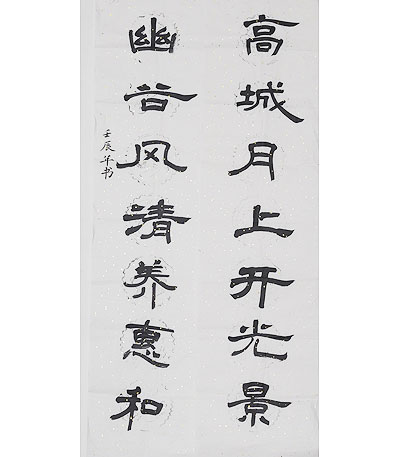 高城月上开光景
幽谷风清养惠和
壬辰年书